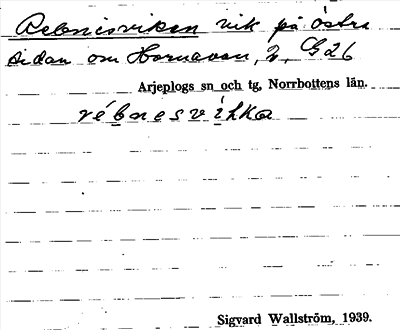 Rebnisviken vik på östra
sidan om Hornavan, 2, G26
Arjeplogs sn och tg, Norrbottens län.
rébnesvihka
Sigvard Wallström, 1939.